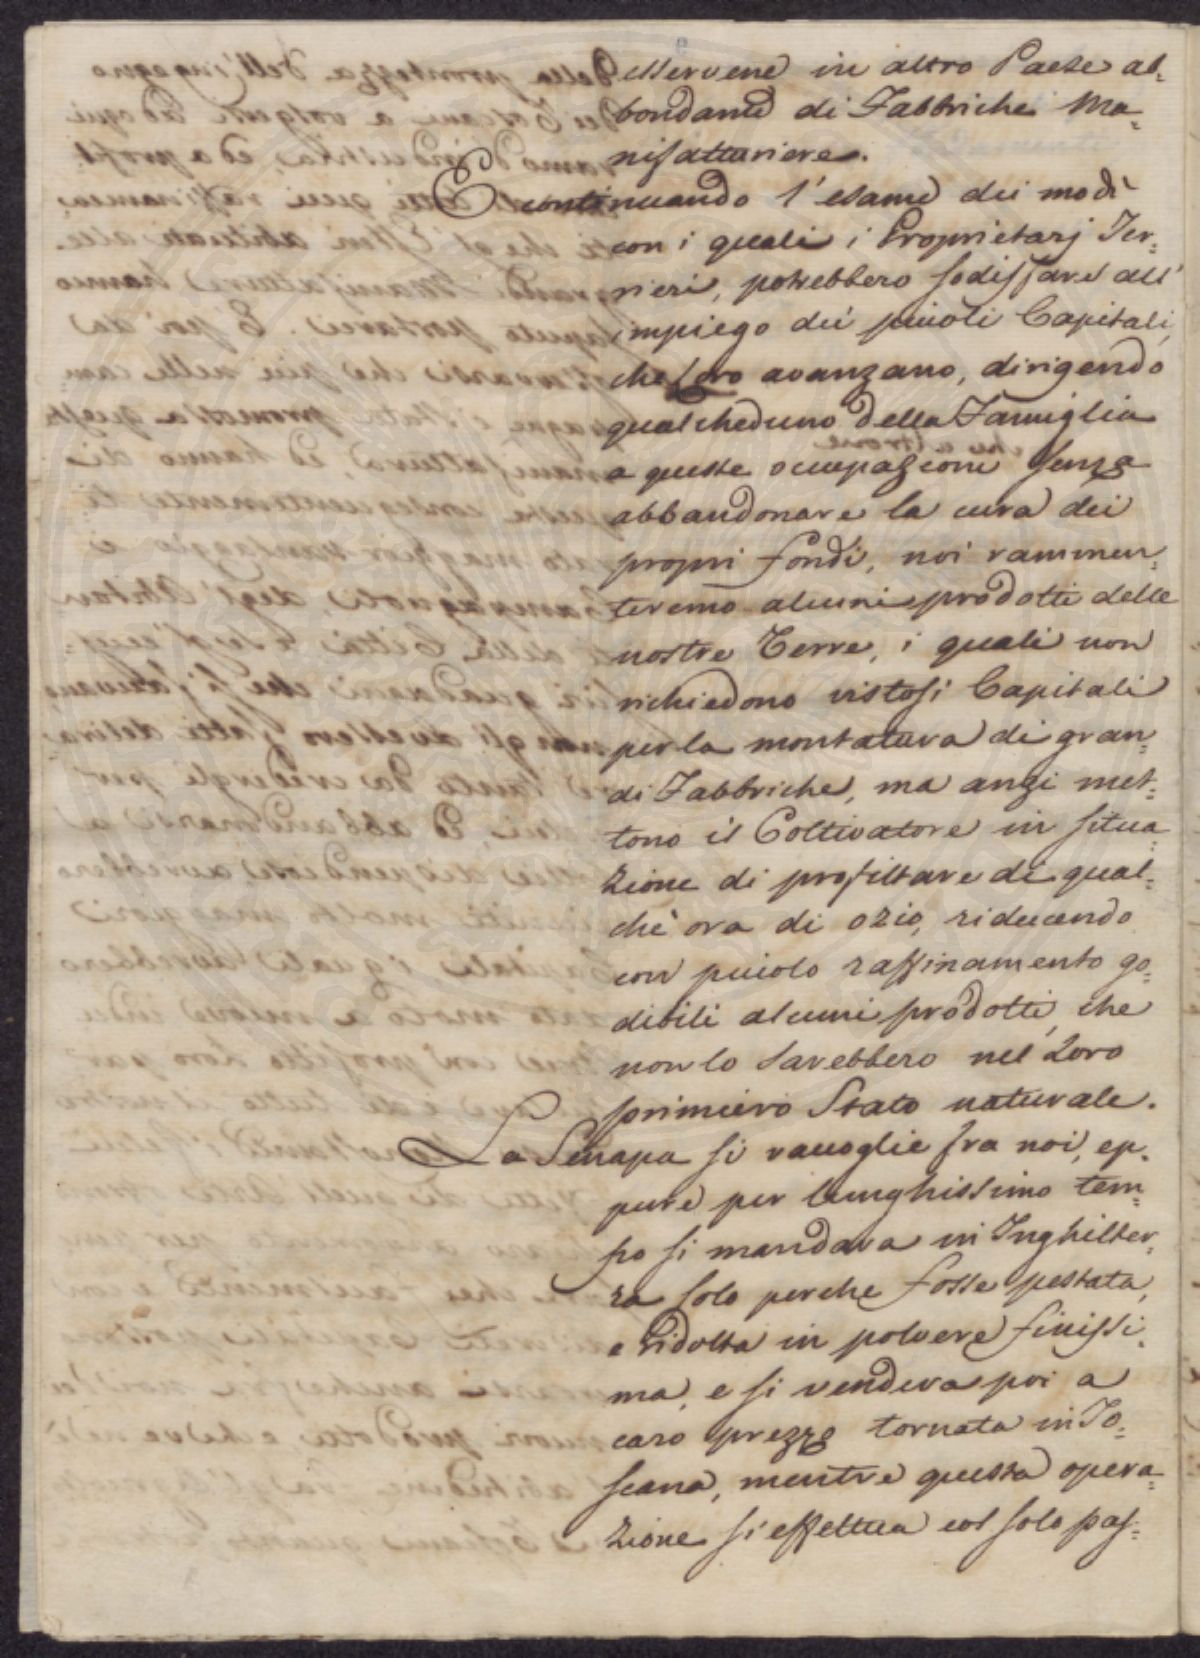 esservene in altro Paese ab=
bondante di Fabbriche Ma=
nifatturiere.
E continuando l'esame dei modi
con i quali i Proprietarj Ter=
rieri, potrebbero sodisfare all'
impiego dei piccoli Capitali,
che loro avanzano, dirigendo
qualcheduno della Famiglia
a queste occupazioni senza
abbandonare la cura dei
propri fondi, noi rammen=
teremo alcuni prodotti delle
nostre Terre, i quali non
richiedono vistosi Capitali
per la montatura di gran=
di Fabbriche, ma anzi met=
tono il Coltivatore in situa=
zione di profittare di qual=
che ora di ozio, riducendo
con piccolo raffinamento go=
dibili alcuni prodotti, che
non lo sarebbero nel Loro
primiero Stato naturale.
La Senapa si raccoglie fra noi, ep=
pure per lunghissimo tem=
po si mandava in Inghilter=
ra solo perche fosse pestata,
e ridotta in polvere finissi=
ma, e si vendeva poi a
caro prezzo tornata in To=
scana, mentre questa opera=
zione si effettua col solo pas=